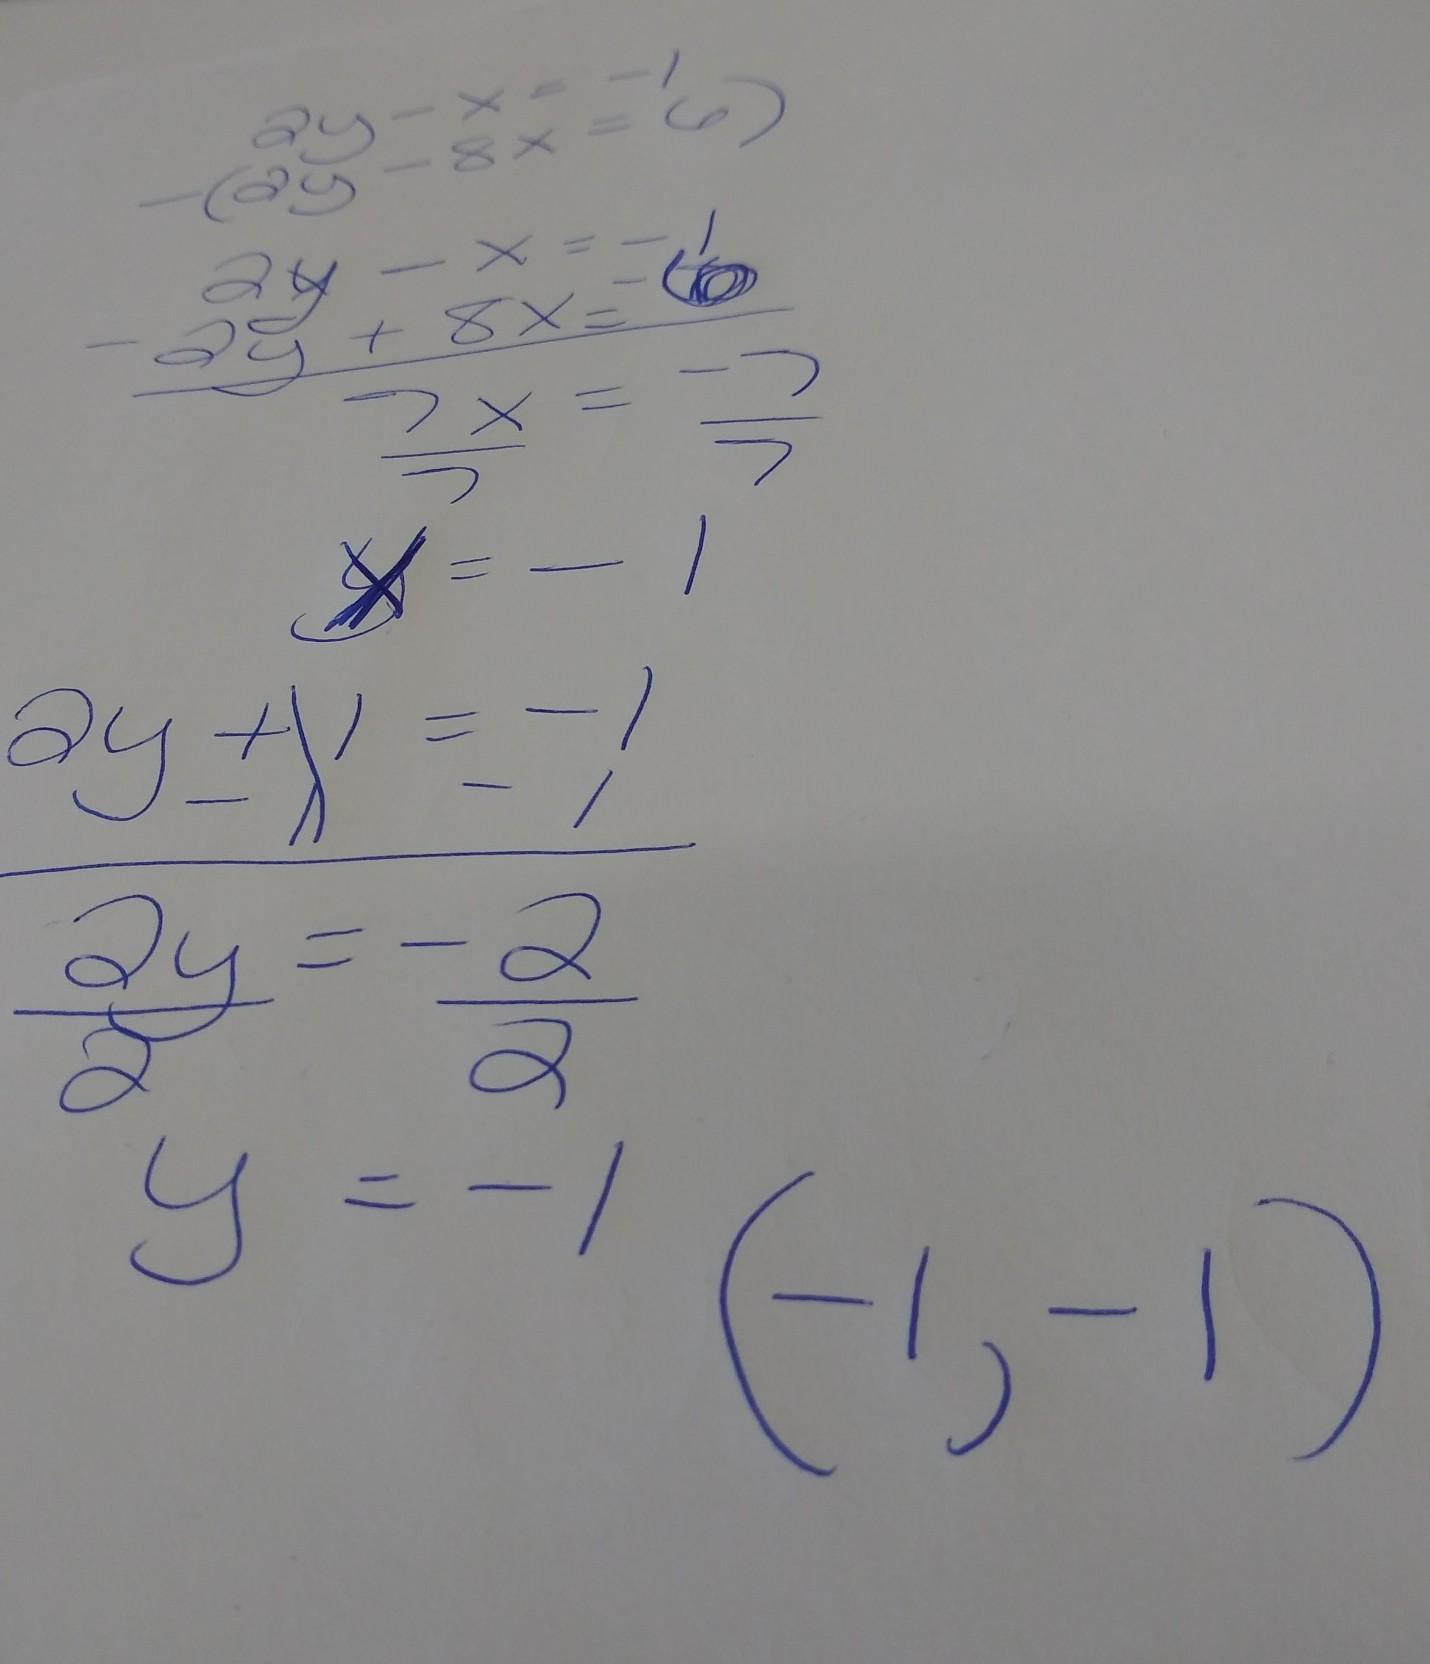 2y - x = -1
-(2y - 8x = 6)
2y - x = -1
-2y + 8x = -6
7x = -7
7 7
x = -1
2y + 1 = -1
- 1 - 1
2y = -2
2 2
y = -1
(-1, -1)